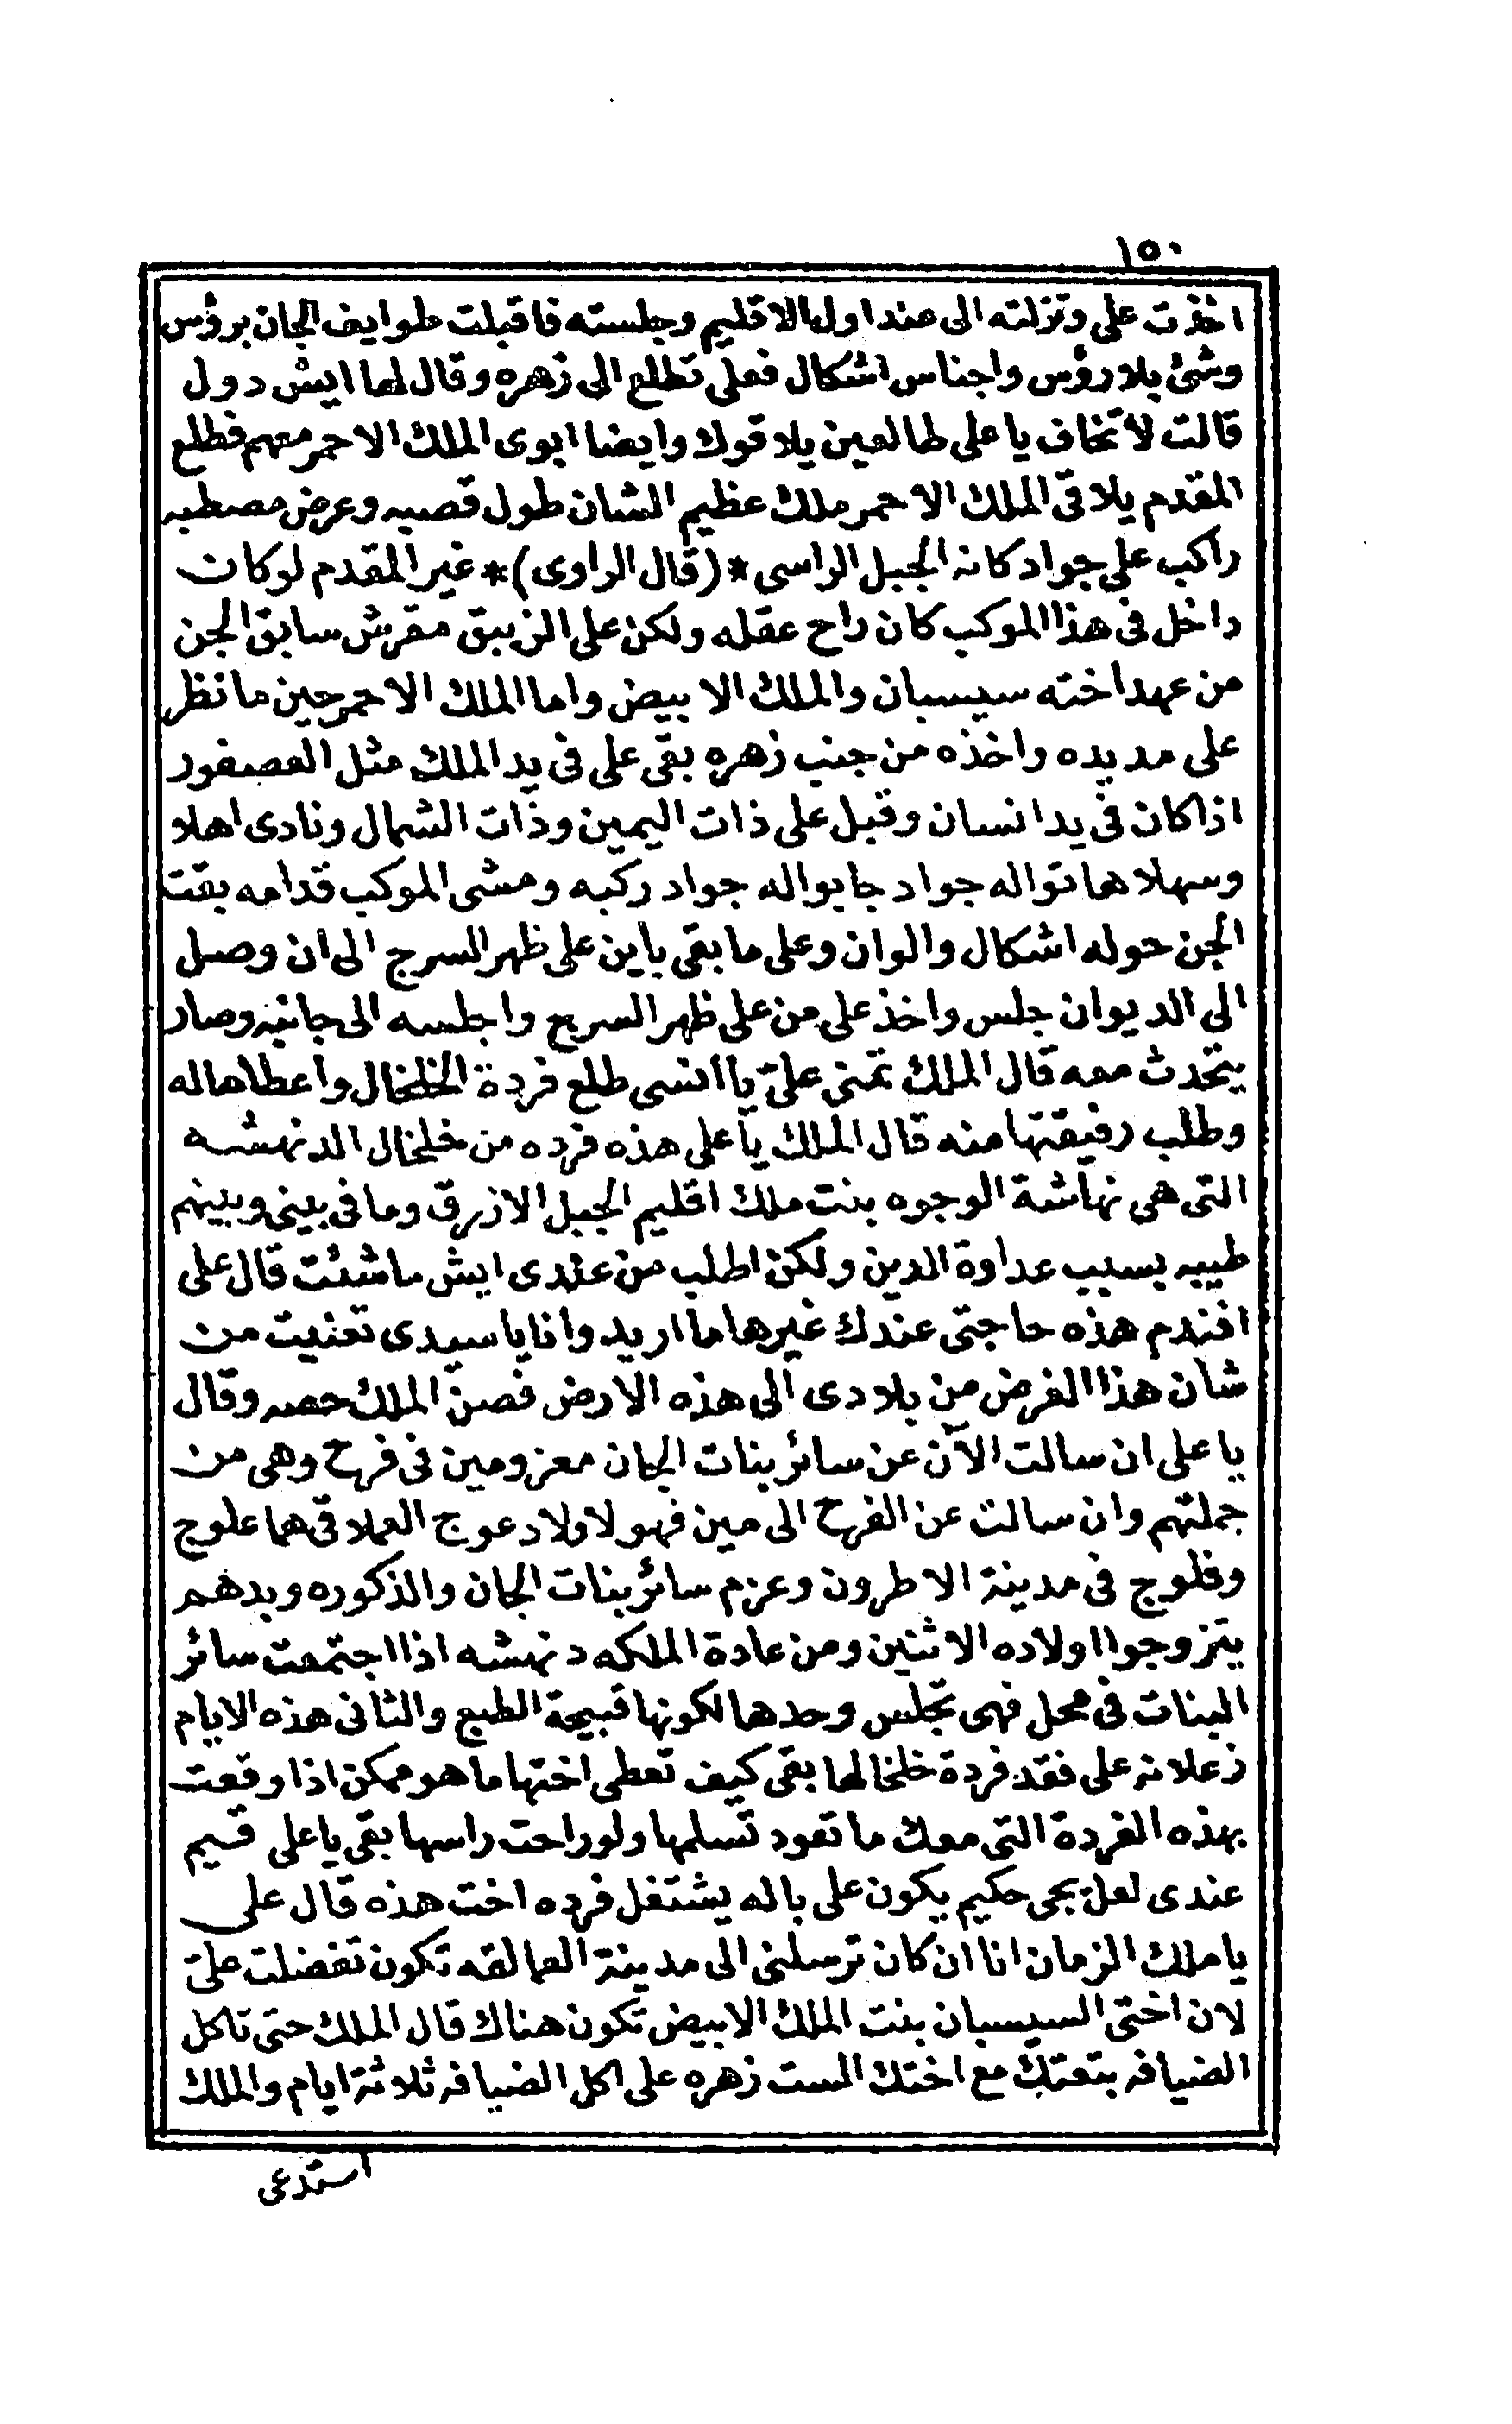 ١٥٠
اخذت على ونزلته الى عند اول الاقليم وجلسته فاقبلت طوايف الجان برؤس
وشئ بلا رؤس واجناس اشكال فعلى تطلع الى زهره وقال لها ايش دول
قالت لا تخاف يا على طالعين يلاقوك وايضا ابوى الملك الاحمر معهم فطلع
المقدم يلاقى الملك الاحمر ملك عظيم الشان طول قصبه وعرض مصطبه
راكب على جواد كانه الجبل الراسى * (قال الراوى) * غير المقدم لو كان
داخل فى هذا الموكب كان راح عقله ولكن على الزيبق مقرش سابق الجن
من عهد اخته سيسبان والملك الابيض واما الملك الاحمر حين ما نظر
على مد يده واخذه من جنب زهره بقى على فى يد الملك مثل العصفور
اذا كان فى يد انسان وقبل على ذات اليمين وذات الشمال ونادى اهلا
وسهلا هاتوا له جواد جابوا له جواد ركبه ومشى الموكب قدامه بقت
الجن حوله اشكال والوان وعلى ما بقى باين على ظهر السرج الى ان وصل
الى الديوان جلس واخذ على من على ظهر السرج واجلسه الى جانبه وصار
يتحدث معه قال الملك تمنى علىّ يا انسى طلع فردة الخلخال واعطاها له
وطلب رفيقتها منه قال الملك يا على هذه فرده من خلخال الدنهشه
التى هى نهاشة الوجوه بنت ملك اقليم الجبل الازرق وما فى بينى وبينهم
طيبه بسبب عداوة الدين ولكن اطلب من عندى ايش ما شئت قال على
افندم هذه حاجتى عندك غيرها ما اريد وانا يا سيدى تعنيت من
شان هذا الغرض من بلادى الى هذه الارض فصن الملك حصه وقال
يا على ان سالت الآن عن سائر بنات الجان معزومين فى فرح وهى من
جملتهم وان سالت عن الفرح الى مين فهو لاولاد عوج العملاقى هما علوج
وفلوج فى مدينة الاطرون وعزم سائر بنات الجان والمذكوره وبدهم
يتزوجوا اولاده الاثنين ومن عادة الملكه دنهشه اذا اجتمعت سائر
البنات فى محل فهى تجلس وحدها لكونها قبيحة الطبع والثانى هذه الايام
زعلانه على فقد فردة خلخالها بقى كيف تعطى اختها ما هو ممكن اذا وقعت
بهذه الفردة التى معك ما تعود تسلمها ولو راحت راسها بقى يا على قيم
عندى لعل يجى حكيم يكون على باله يشتغل فرده اخت هذه قال على
يا ملك الزمان انا ان كان ترسلنى الى مدينة العمالقه تكون تفضلت علىّ
لان اختى السيسبان بنت الملك الابيض تكون هناك قال الملك حتى تاكل
الضيافه بتعتك مع اختك الست زهره على اكل الضيافه ثلاثة ايام والملك
استدعى